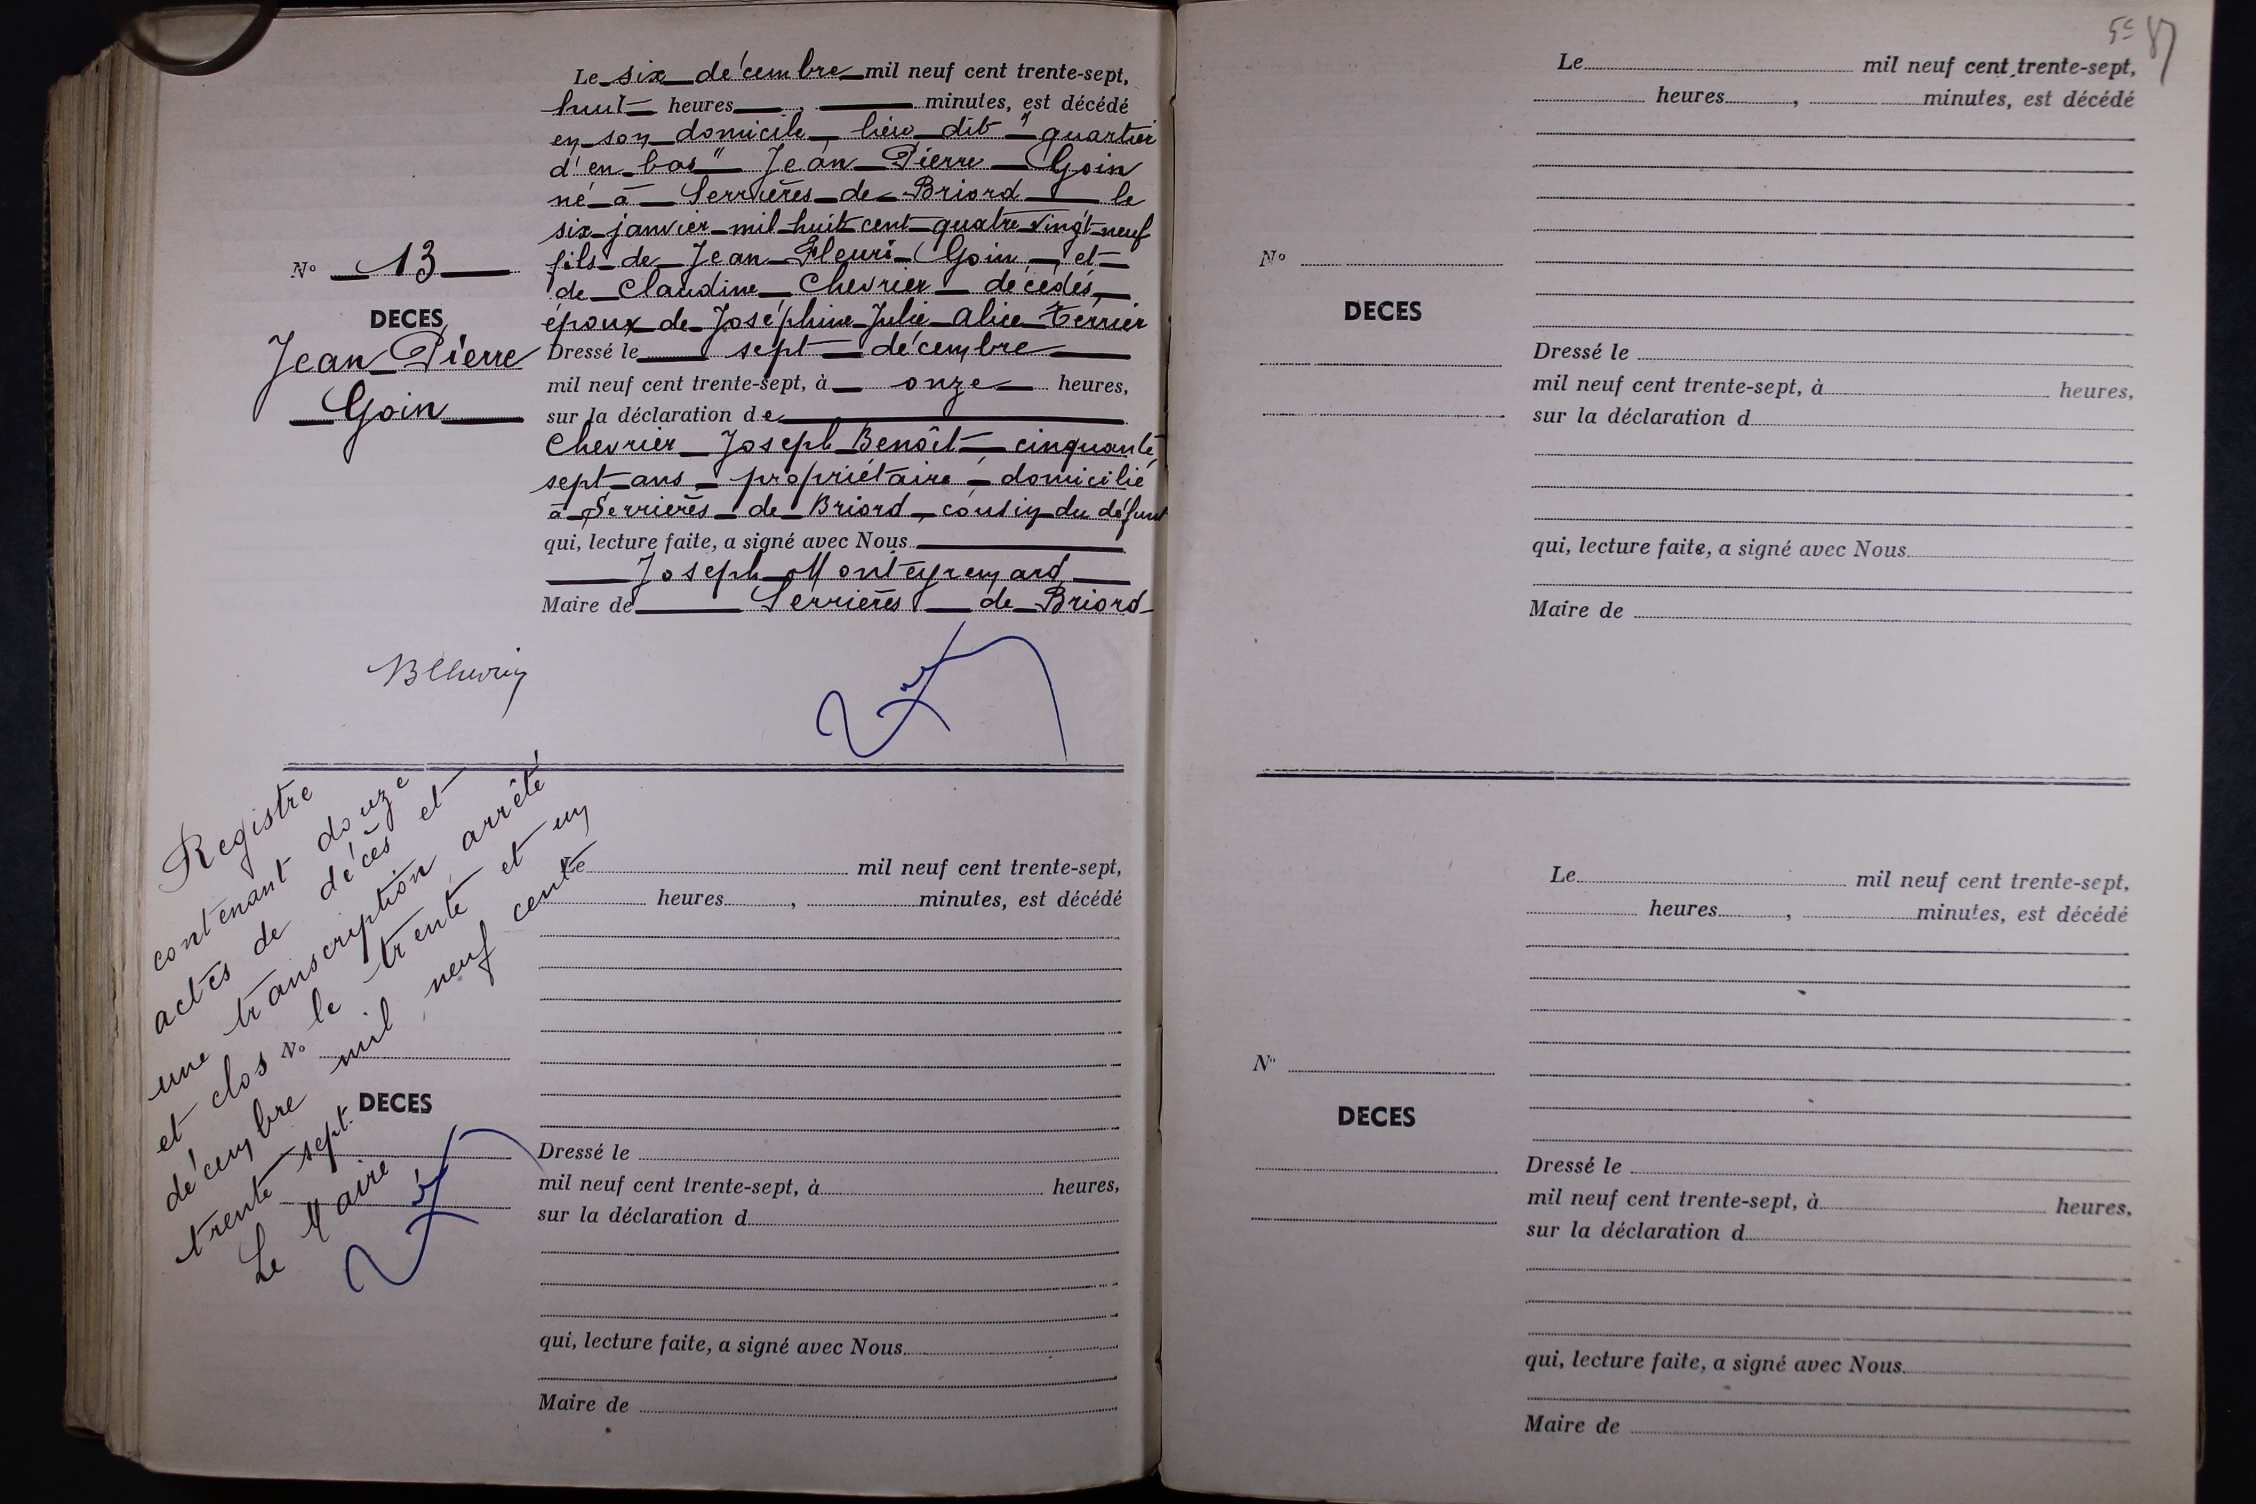 Le six décembre mil neuf cent trente-sept,
huit heures , minutes, est décédé
en son domicile lieu dit " quartier
d'en bas " Jean Pierre Goin
né à Serrières de Briord le
six janvier mil huit cent quatre vingt neuf
fils de Jean Fleuri Goin et
de Claudine Chevrier décédés
époux de Joséphine Julie Alice Terrier
Nº 13
DECES
Jean Pierre
Goin
Dressé le sept décembre
mil neuf cent trente-sept, à onze heures,
sur la déclaration de
Chevrier Joseph Benoît cinquante
sept ans propriétaire domicilié
à Serrières de Briord, cousin du défunt
qui, lecture faite, a signé avec Nous
Joseph Monteyremard
Maire de Serrières de Briord
BChevrier
Registre
contenant douze
actes de décès et
une transcription arrêté
et clos le trente et un
décembre mil neuf cent
trente sept.
Le Maire
Le mil neuf cent trente-sept,
heures , minutes, est décédé
Nº
DECES
Dressé le
mil neuf cent trente-sept, à heures,
sur la déclaration d
qui, lecture faite, a signé avec Nous
Maire de
87
Le mil neuf cent trente-sept,
heures , minutes, est décédé
Nº
DECES
Dressé le
mil neuf cent trente-sept, à heures,
sur la déclaration d
qui, lecture faite, a signé avec Nous
Maire de
Le mil neuf cent trente-sept,
heures , minutes, est décédé
Nº
DECES
Dressé le
mil neuf cent trente-sept, à heures,
sur la déclaration d
qui, lecture faite, a signé avec Nous
Maire de